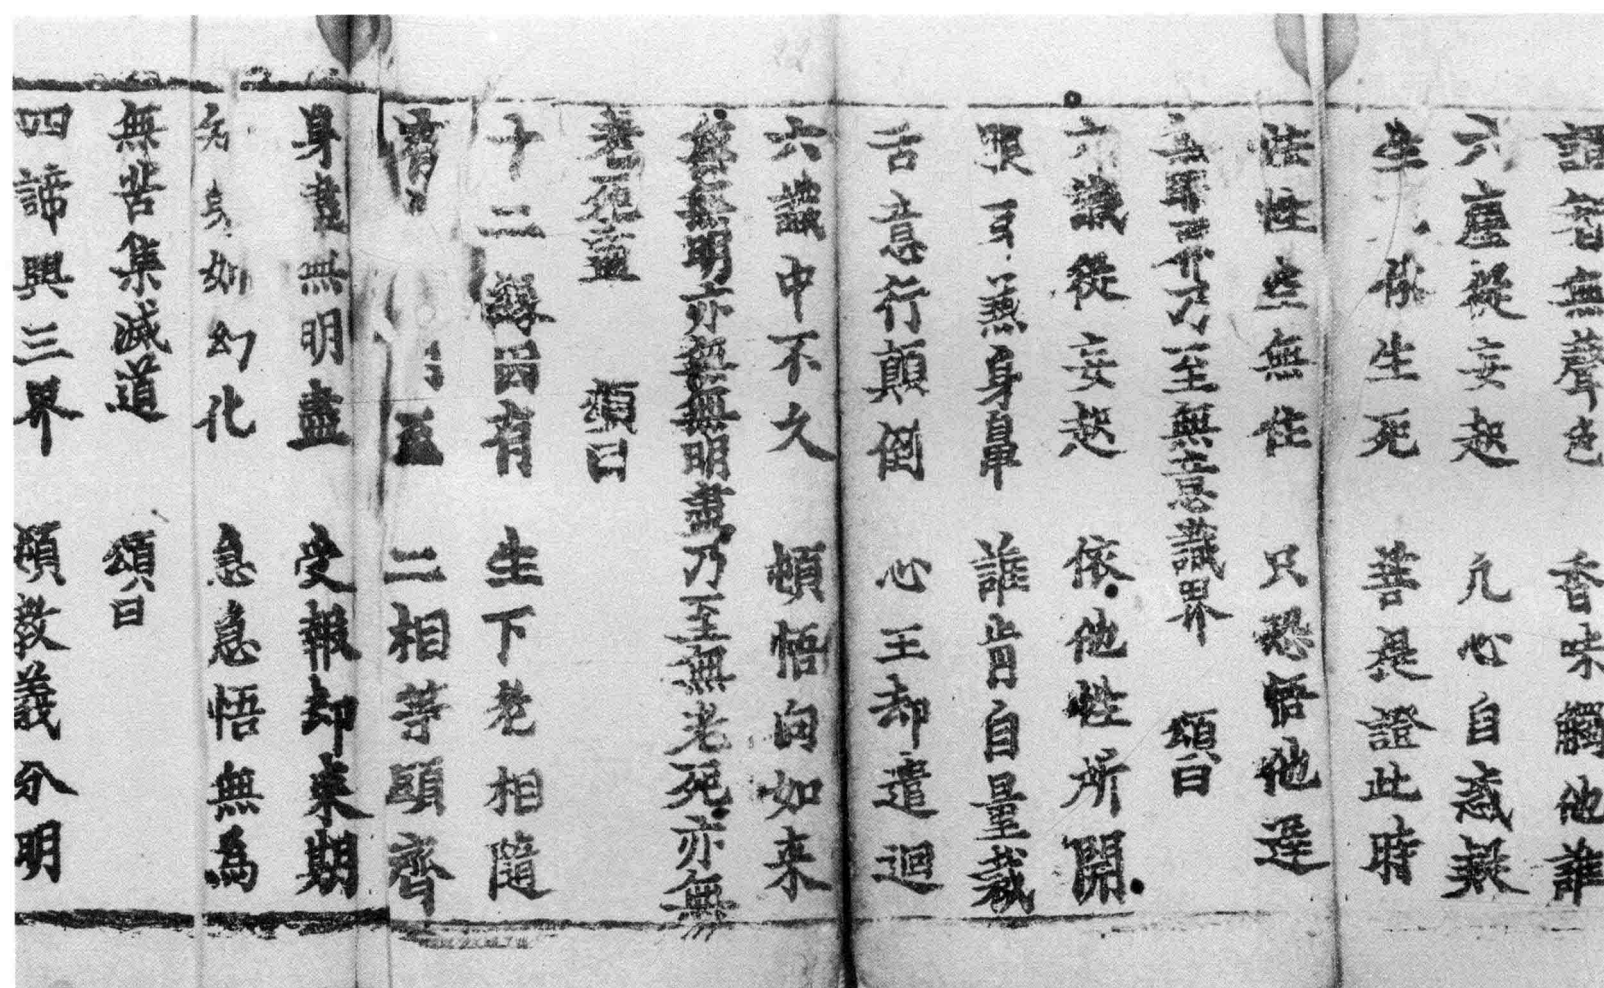 證智無聲色　香味觸他誰
六塵從妄起　凡心自惑疑
生死　生死　菩提證此時
法性空無住　只恐悟他遲
無眼界乃至無意識界　頌曰
六識從妄起　依他性所開
眼耳兼身鼻　誰肯自量裁
舌意行顛倒　心王却遣迴
六識中不久　頓悟向如来
無無明亦無無明盡乃至無老死亦無
老死盡　頌曰
十二緣因有　生下老相隨
有　　　二相等頭齊
身盡無明盡　受報却来期
身如幻化　急急悟無為
無苦集滅道　頌曰
四諦興三界　頓教義分明